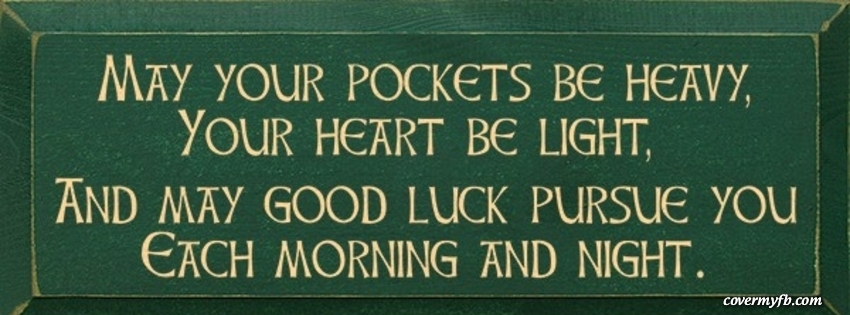 May your pockets be heavy,
Your heart be light,
And may good luck pursue you
Each morning and night.
covermyfb.com